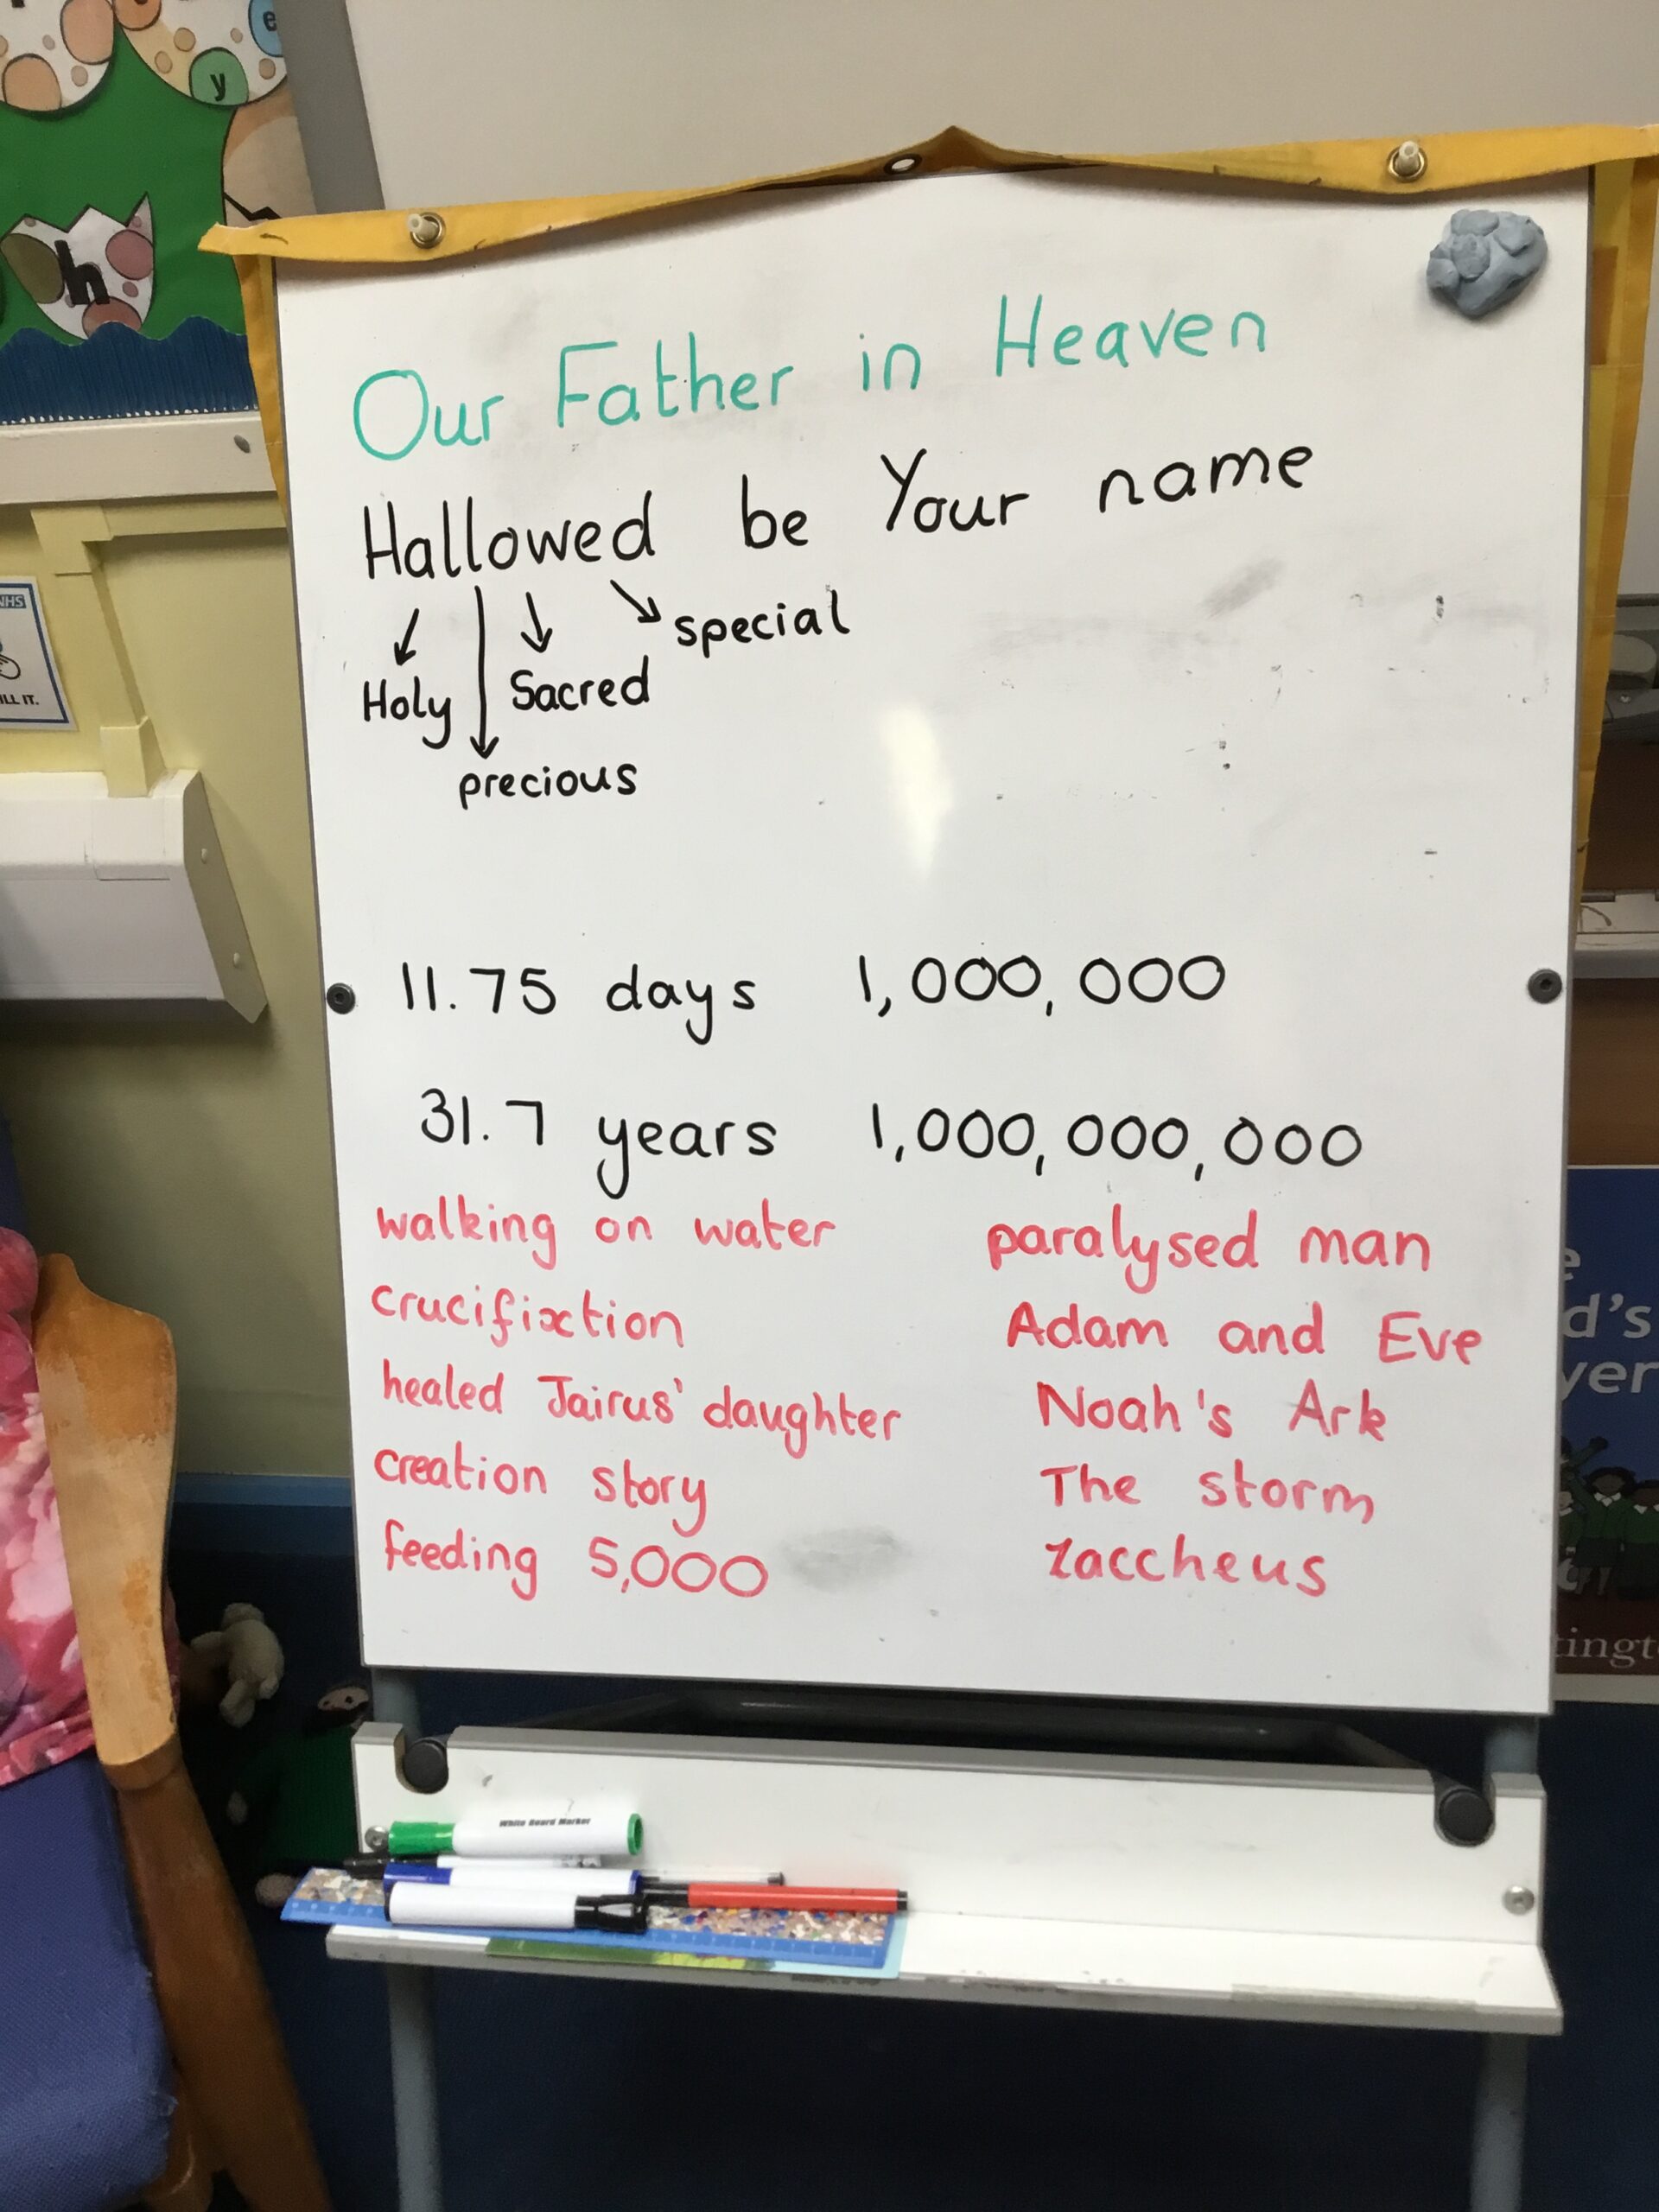 e
y
h
NHS
ILL IT.
Our Father in Heaven
Hallowed be Your name
special
Holy Sacred
precious
11.75 days 1,000,000
31.7 years 1,000,000,000
walking on water paralysed man
crucifixtion Adam and Eve
healed Jairus' daughter Noah's Ark
creation story The storm
feeding 5,000 zaccheus
e
d's
yer
tingt
White Board Marker